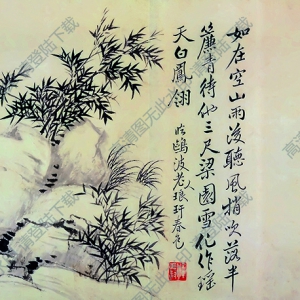 如在空山雨後聽風梢吹落半
簾青待他三尺梁園雪化作瑶
天白鳳翎
鷗波老人琅玕春色